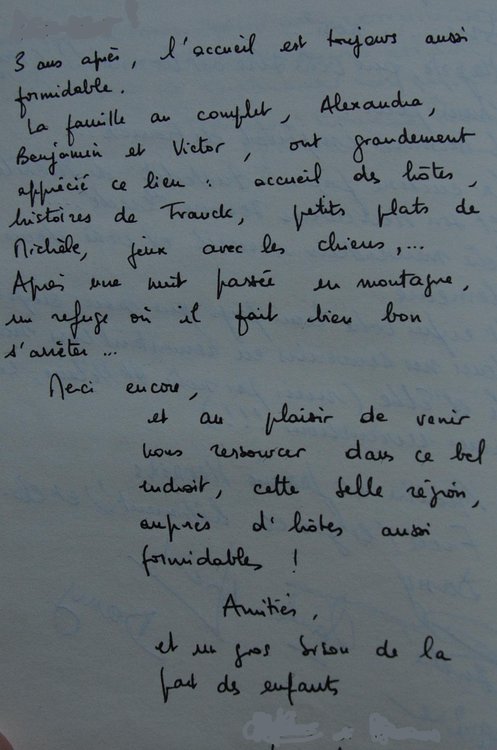 3 ans après, l'accueil est toujours aussi
formidable.
La famille au complet, Alexandra,
Benjamin et Victor, ont grandement
apprécié ce lieu : accueil des hôtes,
histoires de Franck, petits plats de
Michèle, jeux avec les chiens,...
Après une nuit passée en montagne,
un refuge où il fait bien bon
s'arrêter ...
Merci encore,
et au plaisir de venir
nous ressourcer dans ce bel
endroit, cette belle région,
auprès d'hôtes aussi
formidables !
Amitiés,
et un gros bisou de la
part des enfants